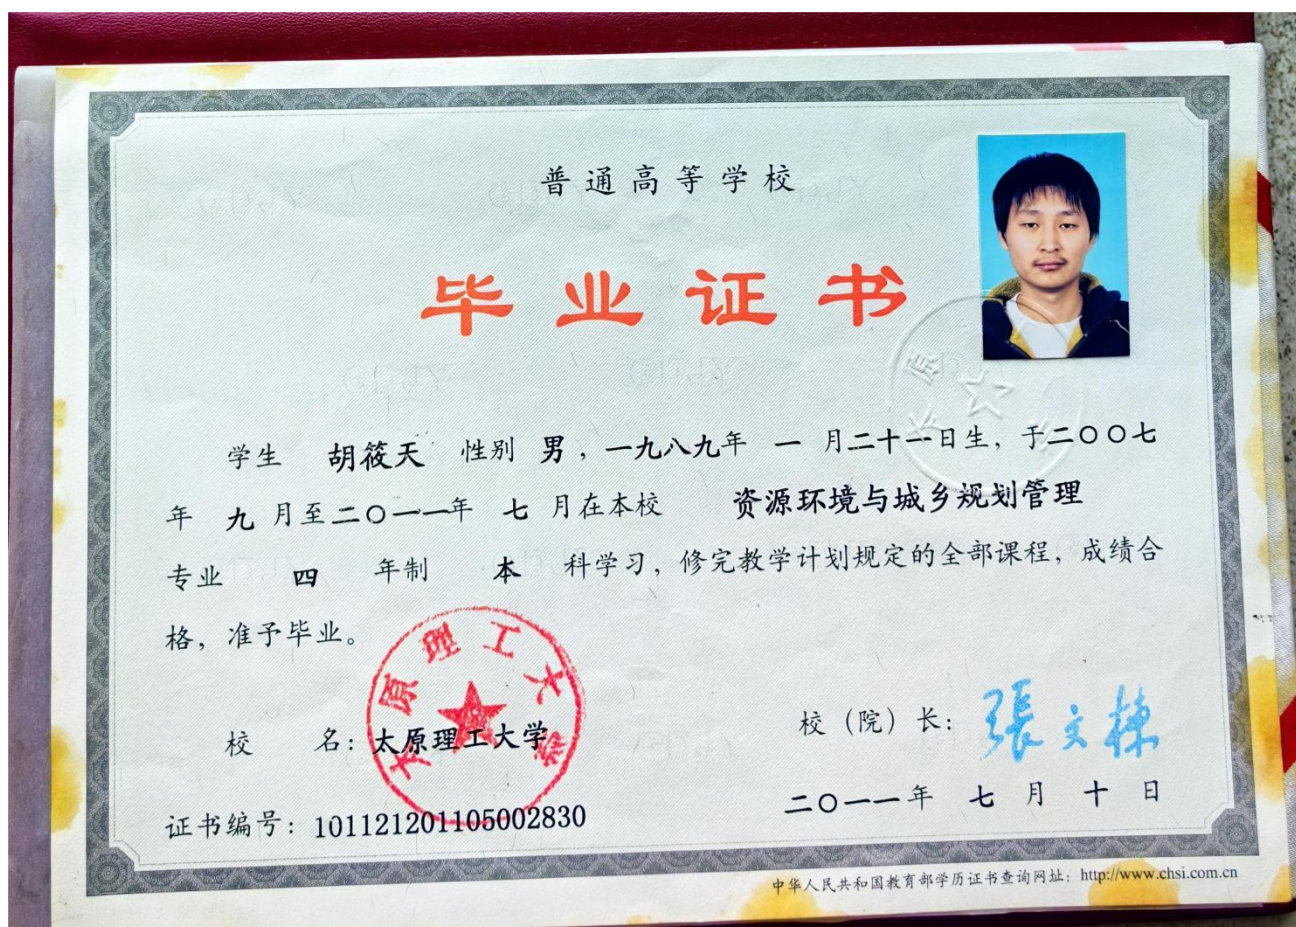 普通高等学校
毕业证书
学生 胡筱天 性别 男，一九八九年 一 月二十一日生，于二〇〇七
年 九 月至二〇一一年 七 月在本校 资源环境与城乡规划管理
专业 四 年制 本 科学习，修完教学计划规定的全部课程，成绩合
格，准予毕业。
太原理工大学
校 名：太原理工大学
校（院）长：張文棟
证书编号：101121201105002830
二〇一一年 七 月 十 日
中华人民共和国教育部学历证书查询网址：http://www.chsi.com.cn